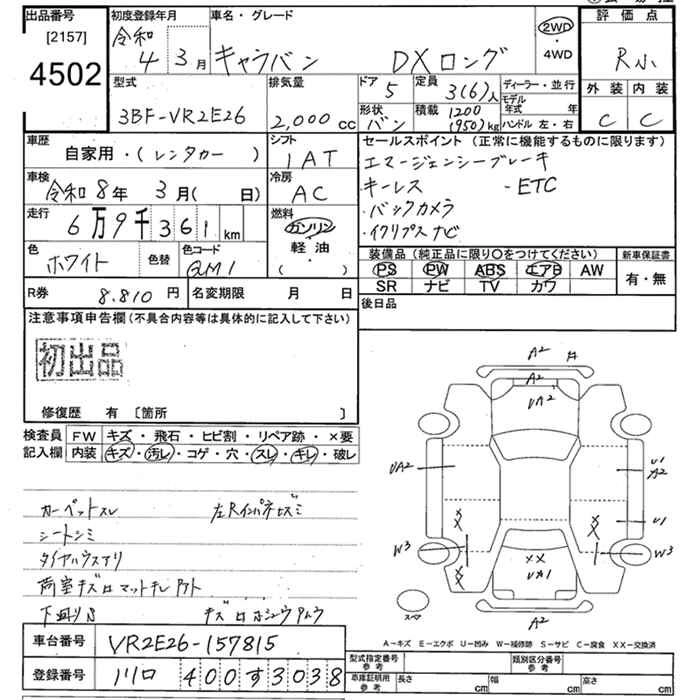 出品番号
[2157]
4502
初度登録年月
令和
4 3月
車名・グレード
キャラバン DXロング
2WD
・
4WD
評価点
R小
外装 内装
C C
型式
3BF-VR2E26
排気量
2,000 cc
ドア
5
定員
3(6)人
形状
バン
積載
1200
(950)kg
ディーラー・並行
モデル
年式 年
ハンドル 左・右
車歴
自家用・(レンタカー)
シフト
IAT
車検
令和8年 3月( 日)
冷房
AC
走行
6万9千361km
燃料
ガソリン
・
軽油
・
( )
色
ホワイト
色替
色コード
QM1
R券 8,810円
名変期限 月 日
セールスポイント(正常に機能するものに限ります)
エマージェンシーブレーキ
・キーレス ・ETC
・バックカメラ
・イクリプスナビ
装備品(純正品に限り〇をつけてください)
PS PW ABS エアB AW
SR ナビ TV カワ
新車保証書
有・無
後日品
注意事項申告欄(不具合内容等は具体的に記入して下さい)
初出品
修復歴 有〔箇所 〕
検査員
記入欄
FW キズ・飛石・ヒビ割・リペア跡・×要
内装 キズ・汚レ・コゲ・穴・スレ・キレ・破レ
カーペットスレ 左Rインパネキズミ
シートシミ
タイヤハウスアリ
荷室キズロマットキレ
下廻りS
A2
A2
UA2
UA2
U1
A2
U1
W3
W3
XX
UA1
A2
スペア
A-キズ E-エクボ U-凹み W-補修跡 S-サビ C-腐食 XX-交換済
車台番号 VR2E26-157815
登録番号 川口 400す3038
型式指定番号
参考
類別区分番号
参考
車庫証明用
参考
長さ cm 幅 cm 高さ cm